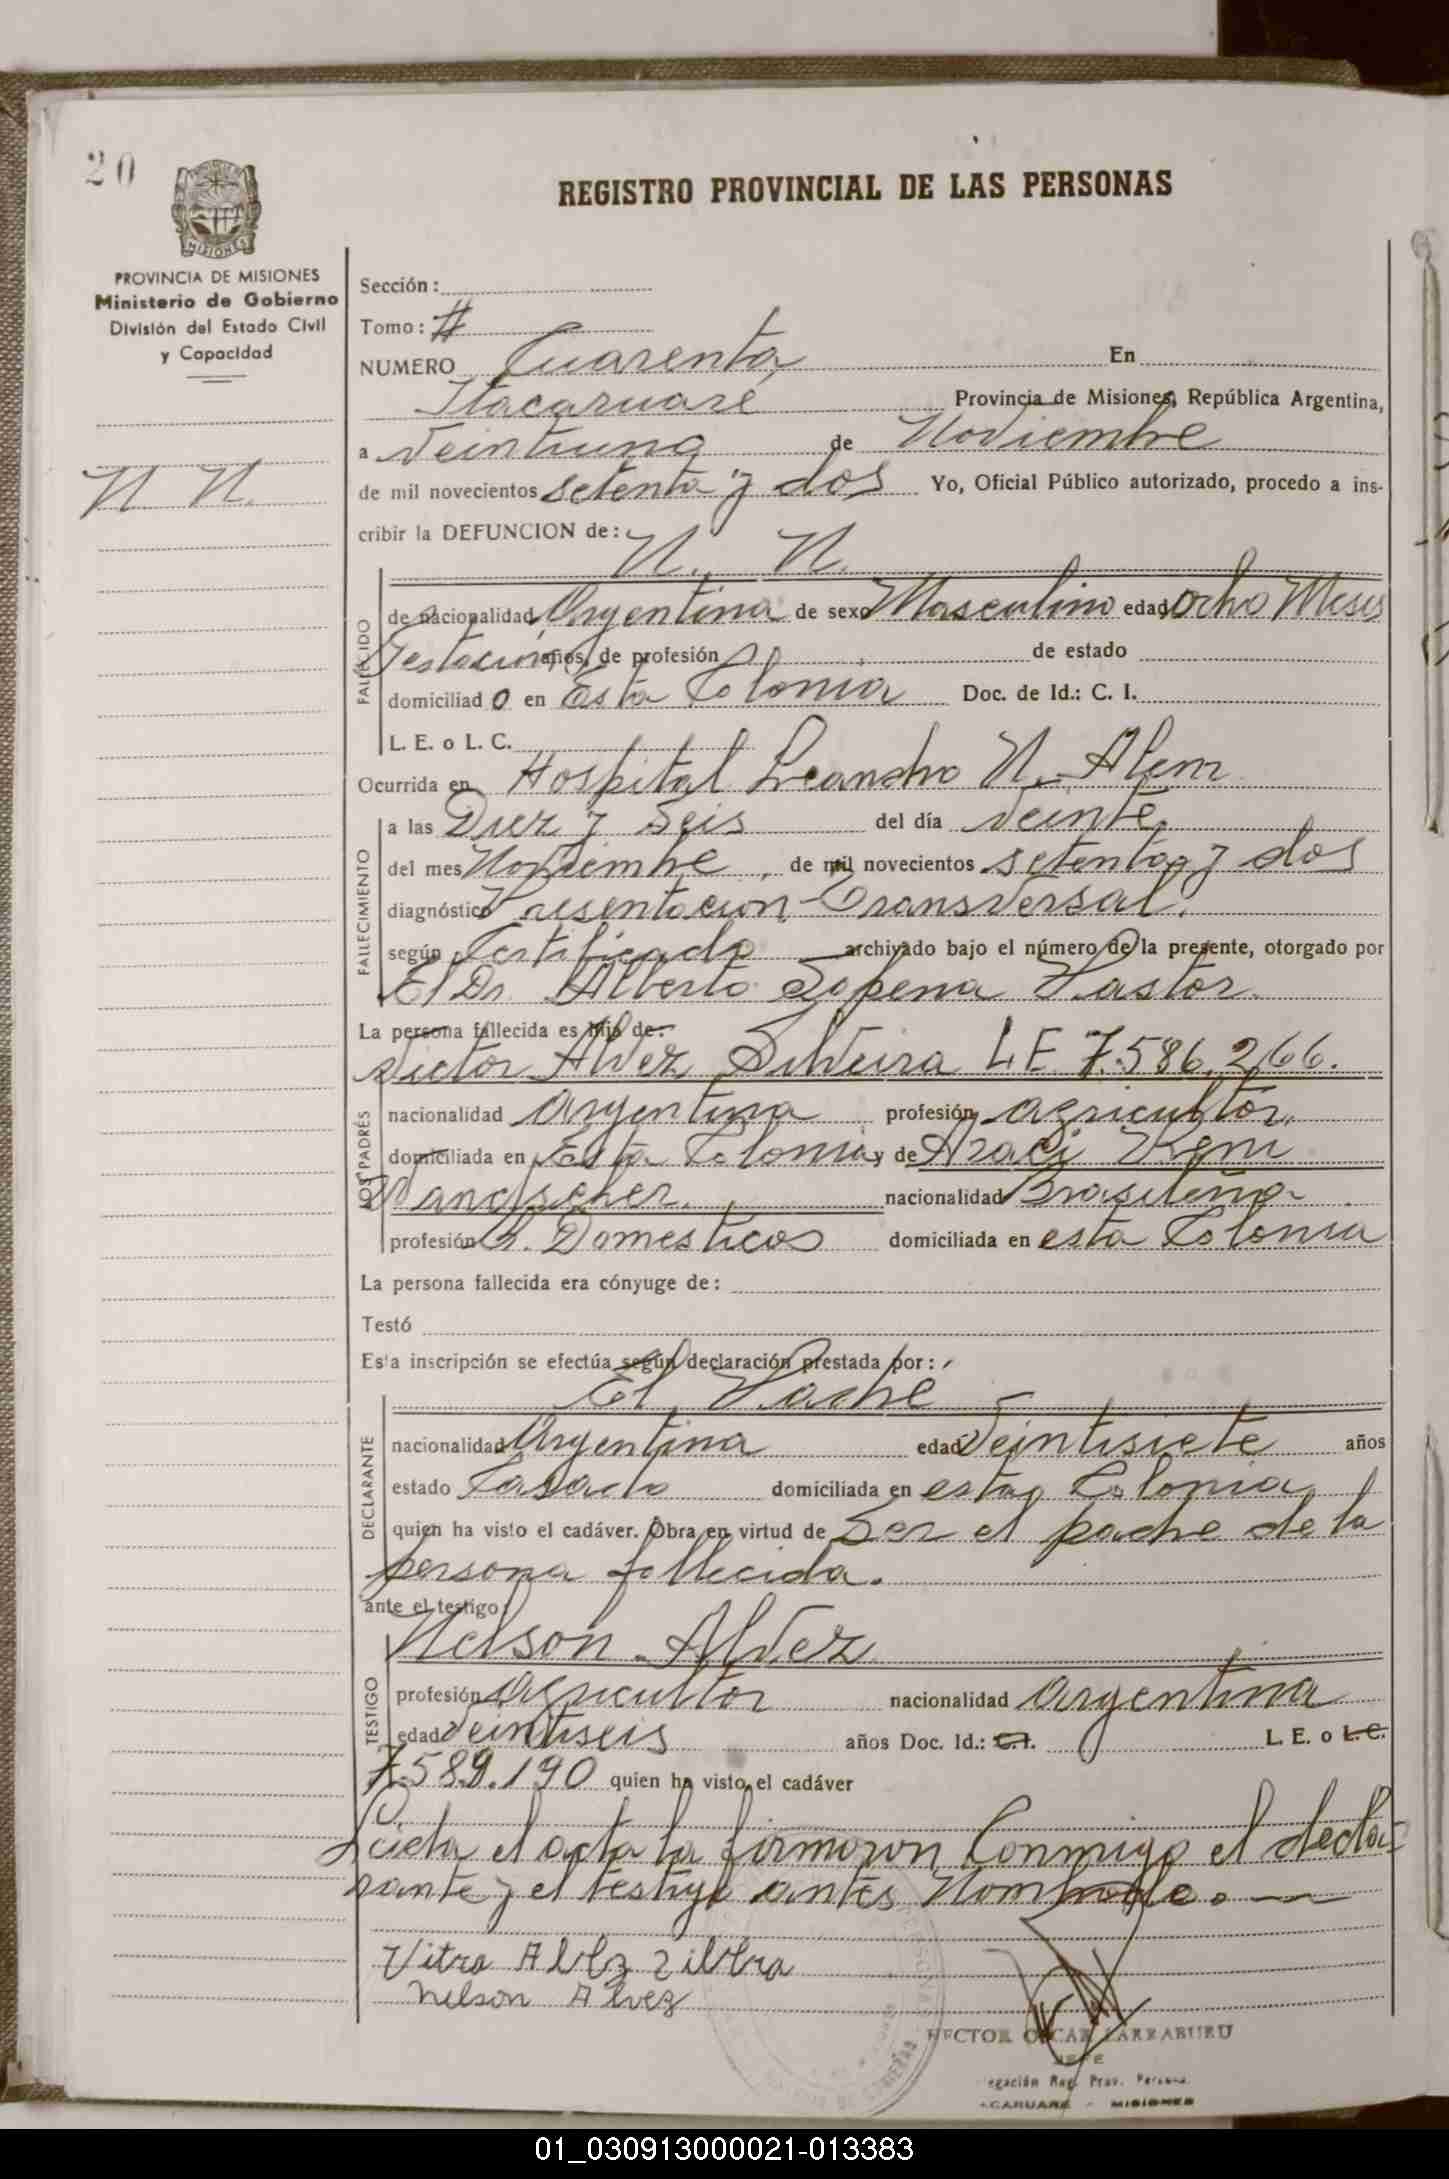 20
REGISTRO PROVINCIAL DE LAS PERSONAS
PROVINCIA DE MISIONES
Ministerio de Gobierno
División del Estado Civil
y Capacidad
N. N.
Sección:
Tomo: #
NUMERO Cuarenta, En
Itacaruaré Provincia de Misiones, República Argentina,
a Veintiuno de Noviembre
de mil novecientos setenta y dos Yo, Oficial Público autorizado, procedo a ins-
cribir la DEFUNCION de:
N. N.
FALLECIDO
de nacionalidad Argentina de sexo Masculino edad Ocho Meses
Gestación años, de profesión de estado
domiciliad o en Esta Colonia Doc. de Id.: C. I.
L. E. o L. C.
Ocurrida en Hospital Leandro N. Alem
FALLECIMIENTO
a las Diez y Seis del día Veinte
del mes Noviembre, de mil novecientos setenta y dos
diagnóstico Presentacion Transversal.
según Certificado archivado bajo el número de la presente, otorgado por
El Dr. Alberto Sopena Pastor.
La persona fallecida es hijo de:
Victor Alvez Silveira L E 7.586.266.
LOS PADRES
nacionalidad Argentina profesión agricultor,
domiciliada en Esta Colonia y de Araci Reni
nacionalidad Brasileña
profesión Q. Domesticos domiciliada en esta Colonia
La persona fallecida era cónyuge de:
Testó
Esta inscripción se efectúa según declaración prestada por:
El Padre
DECLARANTE
nacionalidad Argentina edad Veintisiete años
estado Casado domiciliada en esta Colonia
quien ha visto el cadáver. Obra en virtud de Ser el padre de la
persona fallecida.
ante el testigo:
Nelson Alvez
TESTIGO
profesión agricultor nacionalidad Argentina
edad Veintiseis años Doc. Id.: C.I. L. E. o L.C.
7.589.190 quien ha visto el cadáver
Leida el acta la firmaron Conmigo el decla-
rante y el testigo antes Nombrado.
Nelson Alvez
HECTOR OSCAR LARRABURU
JEFE
egación Reg. Prov. Persona
ACARUARE - MISIONES
01_030913000021-013383